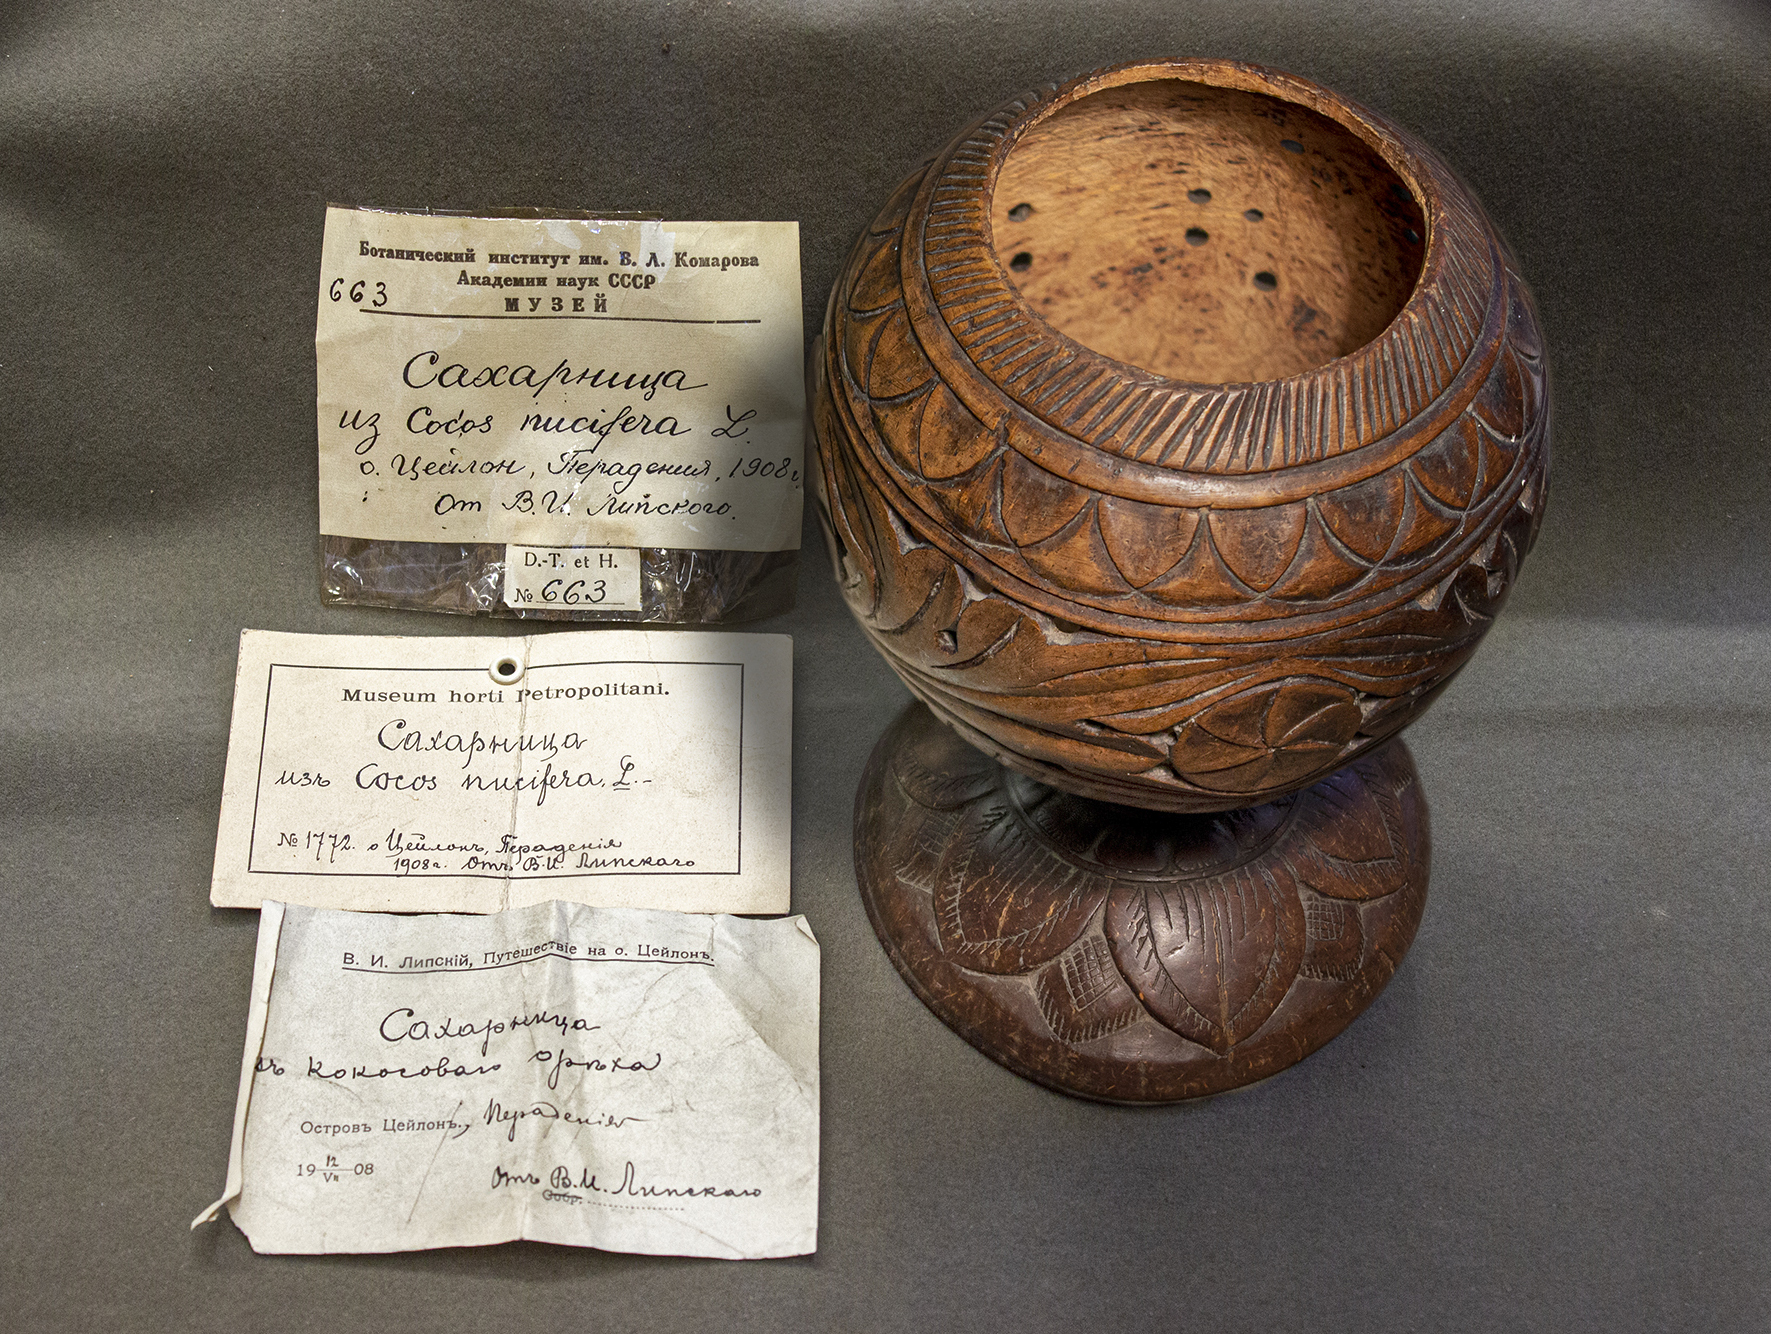 Ботанический институт им. В. Л. Комарова
Академии наук СССР
663
МУЗЕЙ
Сахарница
из Cocos nucifera L.
о. Цейлон, Перадения, 1908 г.
От В.И. Липского.
D.-T. et H.
№ 663
Museum horti Petropolitani.
Сахарница
изъ Cocos nucifera. L.-
№ 1772. о Цейлонъ, Пераденія
1908 г. Отъ В.И. Липскаго
В. И. Липскій, Путешествіе на о. Цейлонъ.
Сахарница
кокосоваго орѣха
Островъ Цейлонъ., Пераденія
19 12/VII 08
Отъ В.И. Липскаго
Собр.